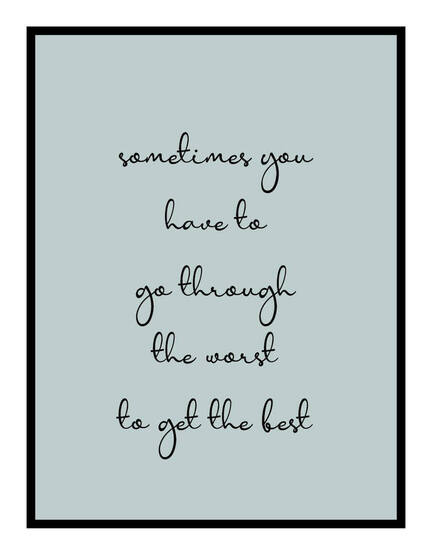 sometimes you
have to
go through
the worst
to get the best